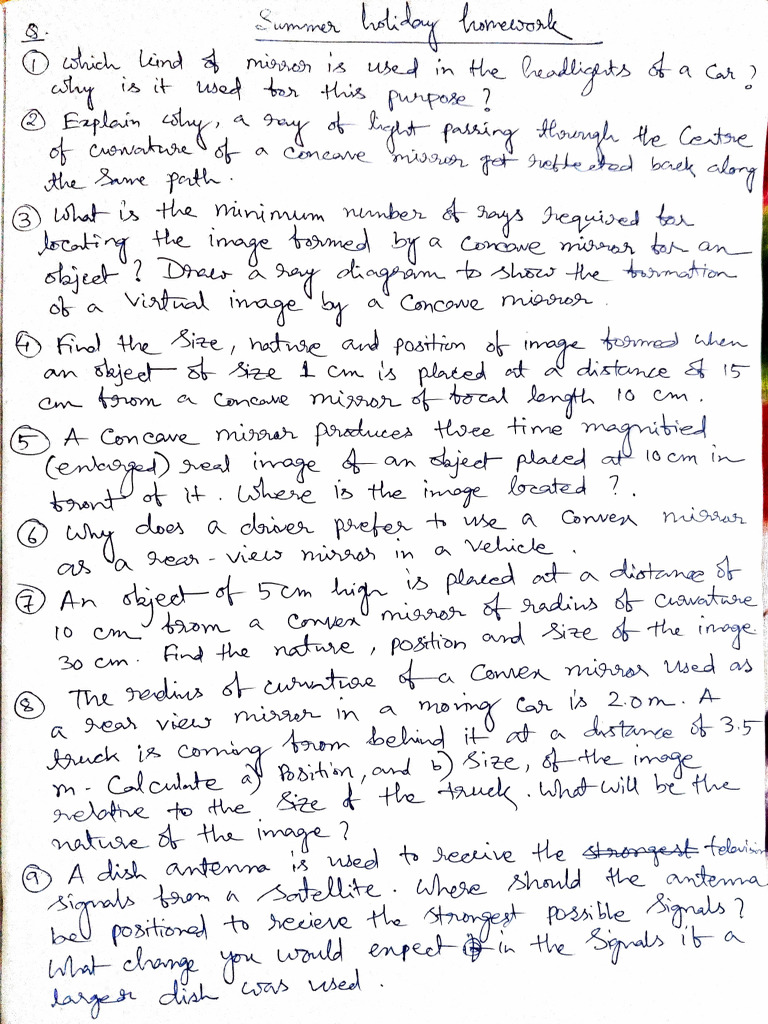 Q. Summer holiday homework
① which kind of mirror is used in the headlights of a car?
why is it used for this purpose?
② Explain why, a ray of light passing through the Centre
of curvature of a concave mirror get reflected back along
the same path.
③ What is the minimum number of rays required for
locating the image formed by a concave mirror for an
object? Draw a ray diagram to show the formation
of a virtual image by a concave mirror.
④ Find the size, nature and position of image formed when
an object of size 1 cm is placed at a distance of 15
cm from a concave mirror of focal length 10 cm.
⑤ A Concave mirror produces three time magnified
(enlarged) real image of an object placed at 10 cm in
front of it. Where is the image located?.
⑥ Why does a driver prefer to use a convex mirror
as a rear-view mirror in a vehicle.
⑦ An object of 5 cm high is placed at a distance of
10 cm from a convex mirror of radius of curvature
30 cm. Find the nature, position and size of the image.
⑧ The redius of curvature of a Convex mirror used as
a rear view mirror in a moving car is 2.0 m. A
truck is coming from behind it at a distance of 3.5
m. Calculate a) Position, and b) size, of the image
relative to the size of the truck. What will be the
nature of the image?
⑨ A dish antenna is used to receive the strongest television
signals from a satellite. Where should the antenna
be positioned to recieve the strongest possible signals?
What change you would expect in the signals if a
larger dish was used.